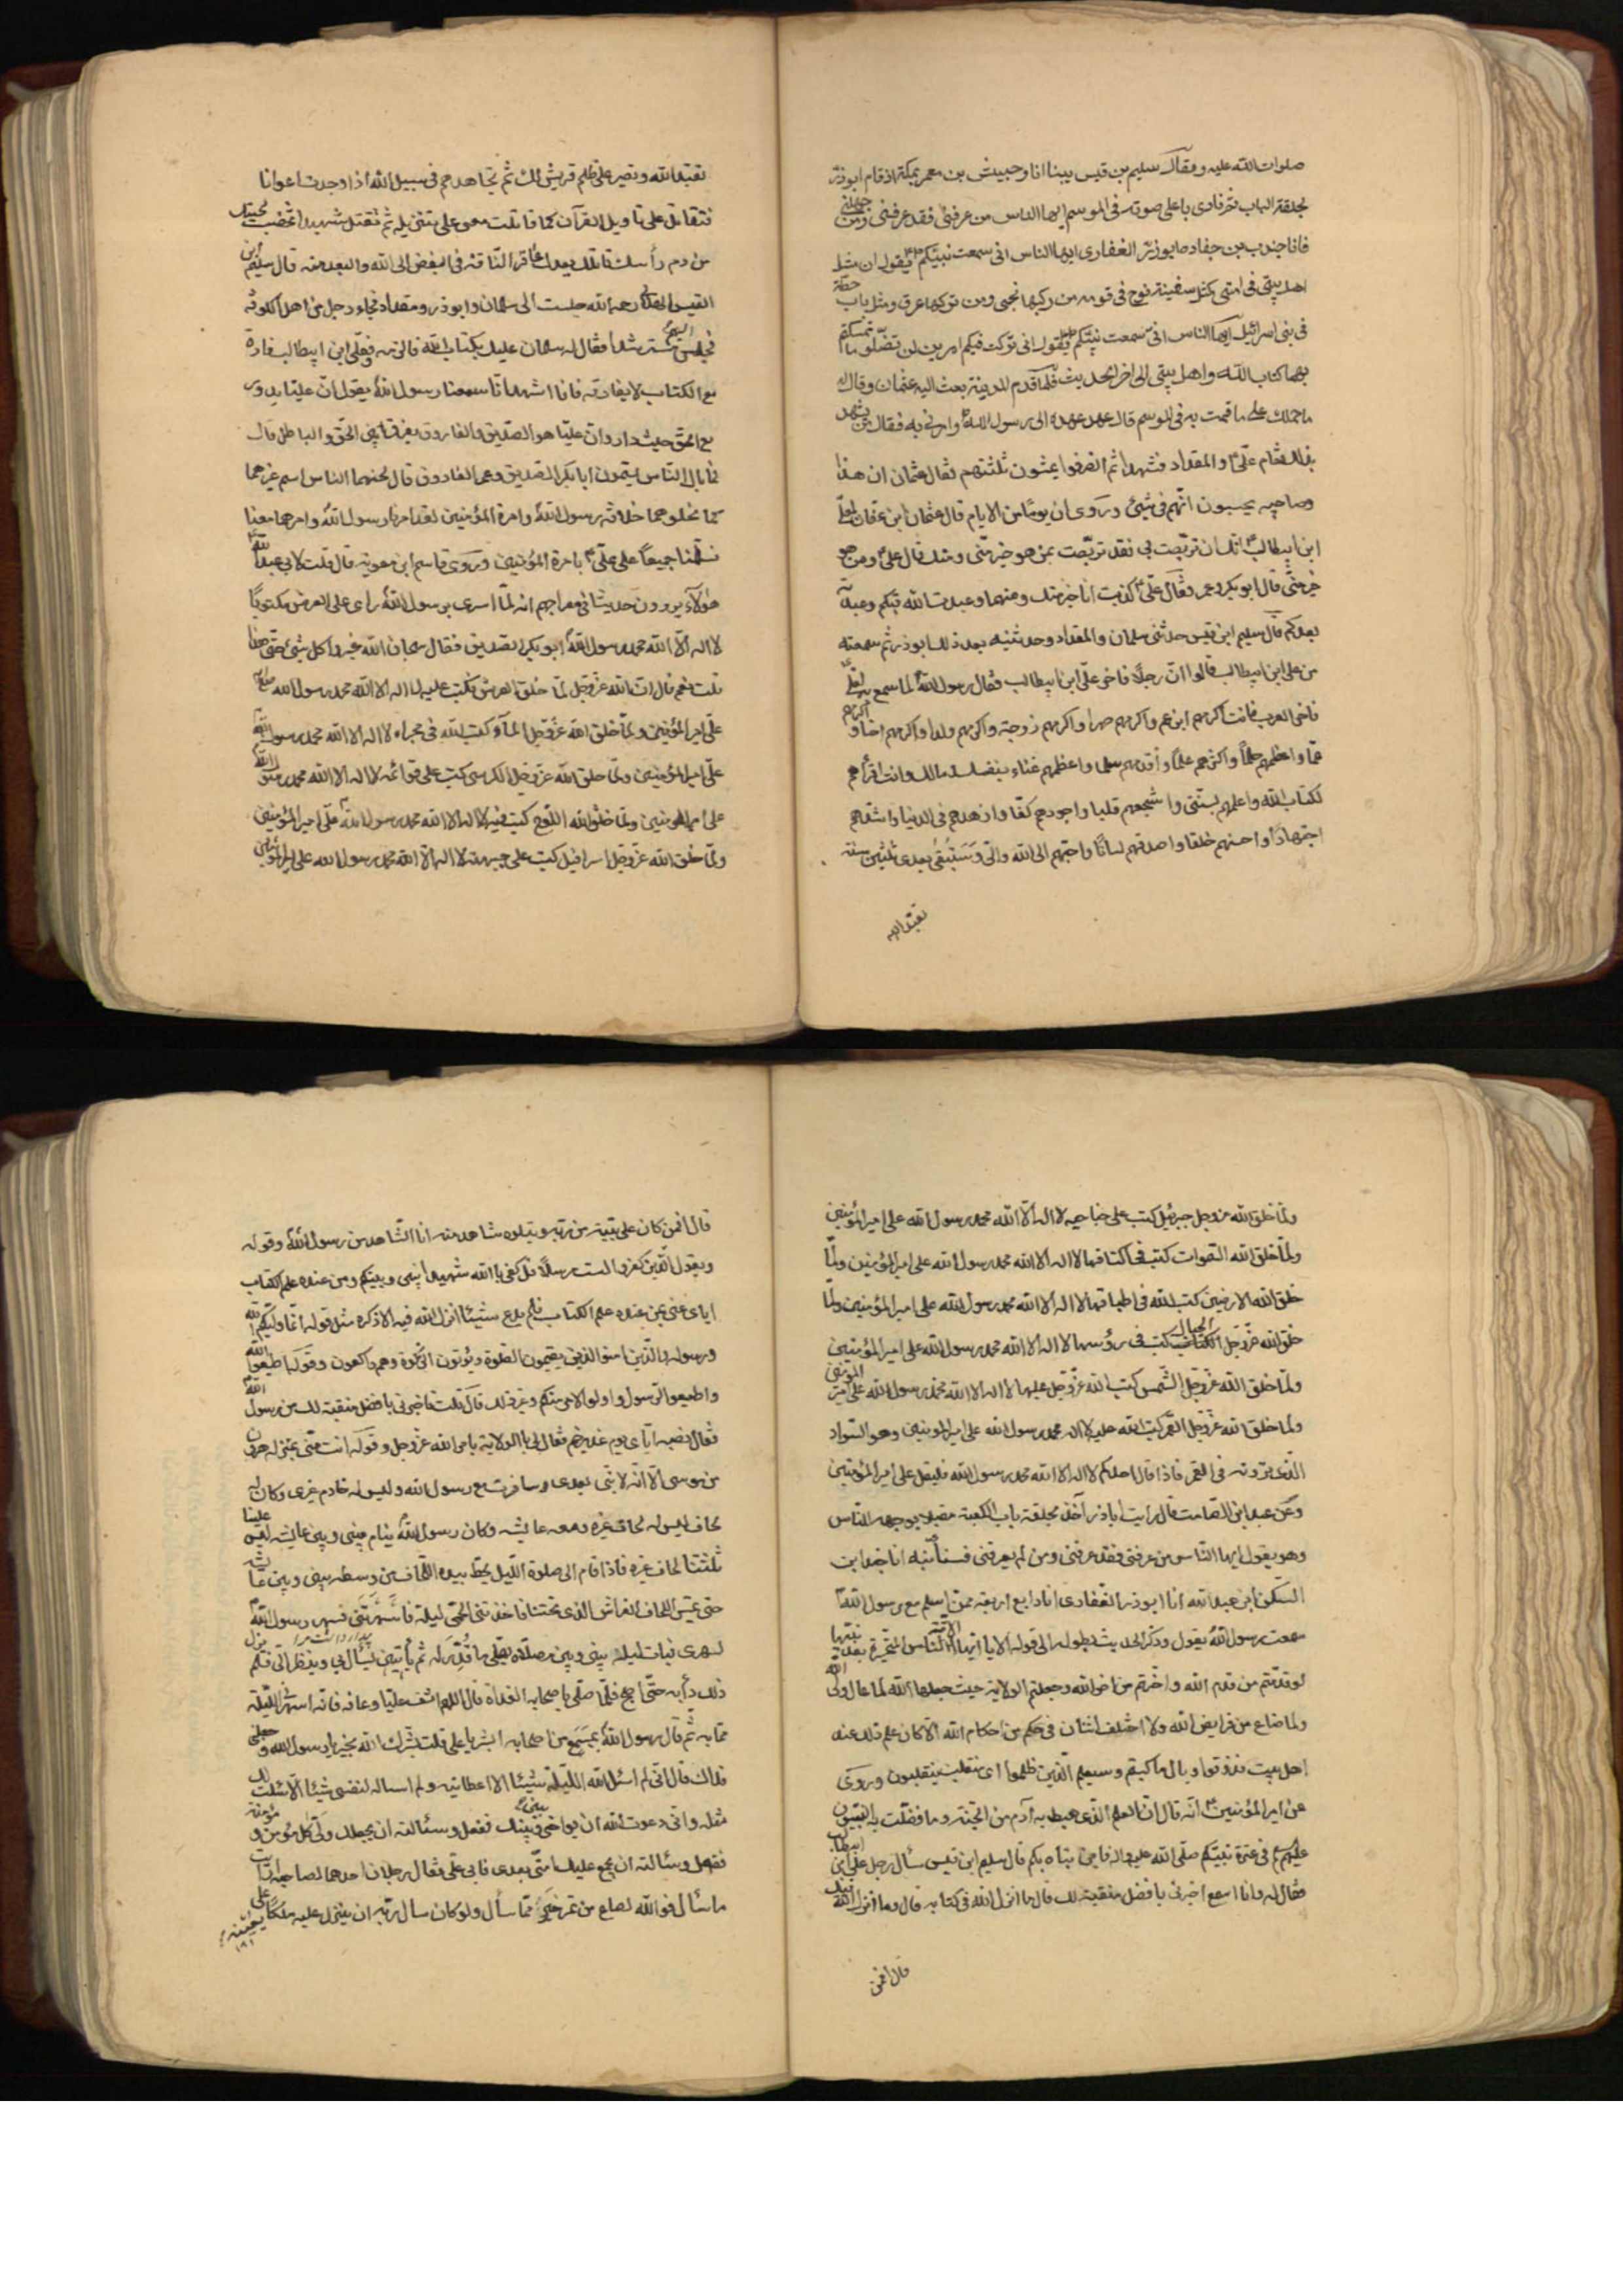 صلوات الله عليه وقال سليم بن قيس بينا انا وحبيش بن معمر بمكة اذ قام ابوذر
بحلقة الباب ثم نادى باعلى صوته فى الموسم ايها الناس من عرفنى فقد عرفنى ومن جهلنى
فانا جندب بن جناده انا ابوذر الغفارى ايها الناس انى سمعت نبيكم يقول ان مثل
اهل بيتى فى امتى كمثل سفينة نوح فى قومه من ركبها نجى ومن تركها غرق ومثل باب حطة
فى بنى اسرائيل ايها الناس انى سمعت نبيكم يقول انى تركت فيكم امرين لن تضلوا ما تمسكتم
بهما كتاب الله واهل بيتى الى اخر الحديث فلما قدم المدينة بعث اليه عثمان وقال له
ما حملك على ما قمت به فى الموسم قال عهد عهده الى رسول الله وامرنى به فقال من يشهد
بذلك فقام على والمقداد فشهدا ثم انصرفوا يمشون ثلثتهم فقال عثمان ان هذا
وصاحبيه يحسبون انهم فى شيئ وروى ان يوما من الايام قال عثمان ابن عفان لعلى
ابن ابيطالب ان تربصت بى فقد تربصت بمن هو خير منى ومنك قال على ومن هو
خير منى قال ابو بكر وعمر فقال على كذبت انا خير منك ومنهما وعبدت الله قبلكم وعبدته
بعدكم قال سليم ابن قيس حدثنى سلمان والمقداد وحدثنيه بعد ذلك ابوذر ثم سمعته
من على ابن ابيطالب قالوا ان رجلا فاخر على ابن ابيطالب فقال رسول الله لما سمع به لعلى
فاخر العرب فانت اكرمهم ابن عم واكرمهم صهرا واكرمهم زوجة واكرمهم ولدا واكرمهم اخا واكرمهم
عما واعظمهم حلما واكثرهم علما واقدمهم سلما واعظمهم غناء بنفسك ومالك وانت اقرأهم
لكتاب الله واعلمهم بسنتى واشجعهم قلبا واجودهم كفا وازهدهم فى الدنيا واشدهم
اجتهادا واحسنهم خلقا واصدقهم لسانا واحبهم الى الله والى وستبقى بعدى ثلثين سنة
تعبد الله
تعبد الله وتصبر على ظلم قريش لك ثم تجاهدهم فى سبيل الله اذا وجدت اعوانا
فتقاتل على تاويل القرآن كما قاتلت معى على تنزيله ثم تقتل شهيدا تخضب لحيتك
من دم رأسك قاتلك يعدل عاقر الناقة فى البغض الى الله والبعد منه قال سليم ابن
القيس الهلالى رحمه الله جلست الى سلمان وابوذر ومقداد فجاء رجل من اهل الكوفة
فجلس اليهم مسترشدا فقال له سلمان عليك بكتاب الله فالزمه وعلى ابن ابيطالب فانه
مع الكتاب لا يفارقه فانا اشهد انا سمعنا رسول الله يقول ان عليا يدور
مع الحق حيث دار وان عليا هو الصديق والفاروق يفرق بين الحق والباطل قال
فما بال الناس يسمون ابا بكر الصديق وعمر الفاروق قال نحلهما الناس اسم غيرهما
كما نحلوهما خلافة رسول الله وامرة المؤمنين لقد امرنا رسول الله وامرهما معنا
فسلمنا جميعا على على بامرة المؤمنين وروى قاسم ابن معوية قال قلت لابى عبد الله
هؤلاء يروون حديثا فى معراجهم انه لما اسرى برسول الله راى على العرش مكتوبا
لا اله الا الله محمد رسول الله ابو بكر الصديق فقال سبحان الله غيروا كل شيئ حتى هذا
قلت نعم قال ان الله عز وجل لما خلق العرش كتب عليه لا اله الا الله محمد رسول الله
على امير المؤمنين ولما خلق الله عز وجل الماء كتب الله فى مجراه لا اله الا الله محمد رسول الله
على امير المؤمنين ولما خلق الله عز وجل الكرسى كتب على قوائمه لا اله الا الله محمد رسول الله
على امير المؤمنين ولما خلق الله اللوح كتب فيه لا اله الا الله محمد رسول الله على امير المؤمنين
ولما خلق الله عز وجل اسرافيل كتب على جبهته لا اله الا الله محمد رسول الله على امير المؤمنين
ولما خلق الله عز وجل جبرئيل كتب على جناحيه لا اله الا الله محمد رسول الله على امير المؤمنين
ولما خلق الله السموات كتب فى اكنافها لا اله الا الله محمد رسول الله على امير المؤمنين ولما
خلق الله الارضين كتب الله فى اطباقها لا اله الا الله محمد رسول الله على امير المؤمنين ولما
خلق الله عز وجل الجبال كتب فى رؤسها لا اله الا الله محمد رسول الله على امير المؤمنين
ولما خلق الله عز وجل الشمس كتب الله عز وجل عليها لا اله الا الله محمد رسول الله على امير المؤمنين
ولما خلق الله عز وجل القمر كتب الله عليه لا اله محمد رسول الله على امير المومنين وهو السواد
الذى ترونه فى القمر فاذا قال احدكم لا اله الا الله محمد رسول الله فليقل على امير المؤمنين
وعن عبد ابن الصامت قال رايت اباذر آخذ بحلقة باب الكعبة مقبلا بوجهه الناس
وهو يقول ايها الناس من عرفنى فقد عرفنى ومن لم يعرفنى فسأنبئه انا جندب ابن
السكن ابن عبد الله انا ابوذر الغفارى انا رابع اربعة ممن اسلم مع رسول الله
سمعت رسول الله يقول وذكر الحديث بطوله الى قوله الا يا ايتها الامة المتحيرة بعد نبيها
لو قدمتم من قدم الله واخرتم من اخر الله وجعلتم الولاية حيث جعلها الله لما عال ولى الله
ولما ضاع من فرايض الله ولا اختلف اثنان فى حكم من احكام الله الا كان علم ذلك عند
اهل بيت فذوقوا وبال ما كسبتم وسيعلم الذين ظلموا اى منقلب ينقلبون وروى
عن امير المؤمنين انه قال ان العلم الذى هبط به آدم من الجنة وما فضلت به النبيون
عليهم فى عترة نبيكم صلى الله عليه واله فاين يتاه بكم قال سليم ابن قيس سأل رجل على ابن ابيطالب
فقال له وانا اسمع اخبرنى بافضل منقبة لك قال ما انزل الله فى كتابه قال وما انزل الله فيك
قال افمن
قال افمن كان على بينة من ربه ويتلوه شاهد منه انا الشاهد من رسول الله وقوله
ويقول الذين كفروا لست مرسلا قل كفى بالله شهيدا بينى وبينكم ومن عنده علم الكتاب
اياى عنى بمن عنده علم الكتاب فلم يدع شيئا انزل الله فيه الا ذكره مثل قوله انما وليكم الله
ورسوله والذين امنوا الذين يقيمون الصلوة ويؤتون الزكوة وهم راكعون وقوله اطيعوا الله
واطيعوا الرسول واولوا الامر منكم وغير ذلك قال قلت فاخبرنى بافضل منقبة لك من رسول الله
فقال نصبه اياى يوم غدير خم فقال لى بالولاية بامر الله عز وجل وقوله انت منى بمنزلة هرون
من موسى الا انه لا نبى بعدى وسافرت مع رسول الله وليس له خادم غيرى وكان له
لحاف ليس له لحاف غيره ومعه عايشه وكان رسول الله ينام بينى وبين عايشه ليس علينا
ثلثتنا لحاف غيره فاذا قام الى صلوة الليل يحط بيده اللحاف من وسطه بينى وبين عايشه
حتى يمس اللحاف الفراش الذى تحتنا فاخذتنى الحمى ليلة فاسهرتنى فسهر رسول الله
بيدار داشت مرا
لسهرى فبات ليلة بينى وبين مصلاه يصلى ما قدر له ثم يأتينى يسأل بى وينظر الى فلم يزل
ذلك دأبه حتى اصبح فلما صلى باصحابه الغداة قال اللهم اشف عليا وعافه فانه اسهرنى الليلة
مما به ثم قال رسول الله بمسمع من اصحابه ابشر يا على قلت بشرك الله بخير يا رسول الله وجعلنى
فداك قال انى لم اسئل الله الليلة شيئا الا اعطانيه ولم اساله لنفسى شيئا الا سئلت لك
مثله وانى دعوت الله ان يواخى بينى وبينك ففعل وسئالته ان يجعلك ولى كل مؤمن ومؤمنة
ففعل وسئالته ان يجمع عليك امتى بعدى فابى على فقال رجلان احدهما لصاحبه ارايت
ما سأل فوالله لصاع من تمر خير مما سأل ولو كان سال ربه ان ينزل عليه ملكا